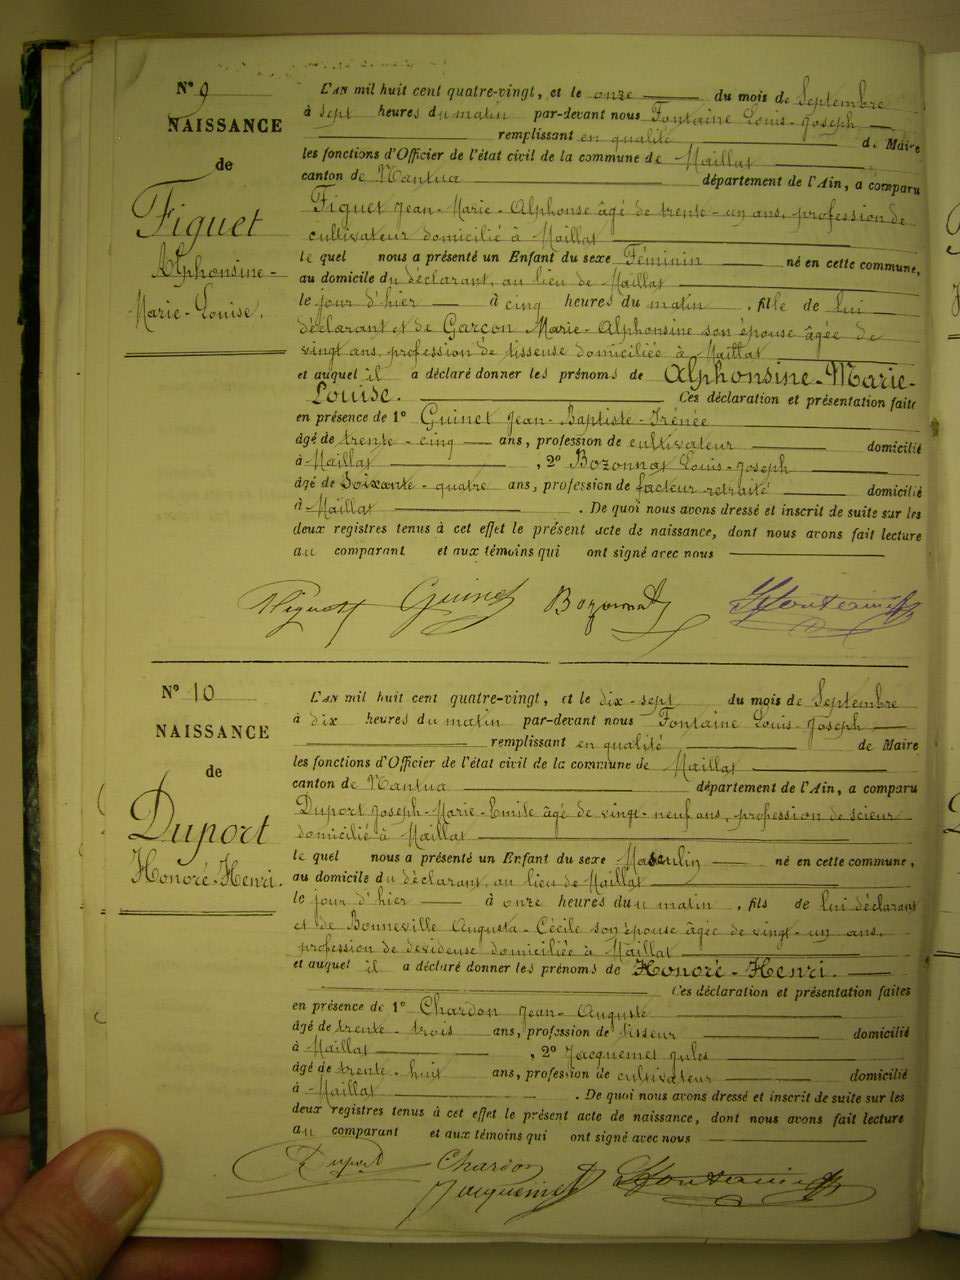 N° 9
NAISSANCE
de
Figuet
Alphonsine-
Marie-Louise.
L'AN mil huit cent quatre-vingt, et le onze du mois de Septembre
à sept heures du matin par-devant nous Fontaine Louis-Joseph
remplissant en qualité de Maire
les fonctions d'Officier de l'état civil de la commune de Maillat
canton de Nantua département de l'Ain, a comparu
Figuet Jean-Marie-Alphonse âgé de trente-un ans, profession de
cultivateur domicilié à Maillat
le quel nous a présenté un Enfant du sexe Féminin né en cette commune,
au domicile du déclarant, au lieu de Maillat
le jour d'hier à cinq heures du matin, fille de lui
déclarant et de Garçon Marie-Alphonsine son épouse âgée de
vingt ans, profession de tisseuse domiciliée à Maillat
et auquel il a déclaré donner les prénoms de Alphonsine-Marie-
Louise. Ces déclaration et présentation faites
en présence de 1° Guinet Jean-Baptiste-Irénée
âgé de trente-cinq ans, profession de cultivateur domicilié
à Maillat, 2° Bozonnat Louis-Joseph
âgé de Soixante-quatre ans, profession de facteur retraité domicilié
à Maillat. De quoi nous avons dressé et inscrit de suite sur les
deux registres tenus à cet effet le présent acte de naissance, dont nous avons fait lecture
au comparant et aux témoins qui ont signé avec nous
Figuet Guinet Bozonnat
N° 10
NAISSANCE
de
Duport
Honoré-Henri.
L'AN mil huit cent quatre-vingt, et le dix-sept du mois de Septembre
à dix heures du matin par-devant nous Fontaine Louis-Joseph
remplissant en qualité de Maire
les fonctions d'Officier de l'état civil de la commune de Maillat
canton de Nantua département de l'Ain, a comparu
Duport Joseph-Marie-Emile âgé de vingt-neuf ans, profession de scieur
domicilié à Maillat
le quel nous a présenté un Enfant du sexe Masculin né en cette commune,
au domicile du déclarant, au lieu de Maillat
le jour d'hier à onze heures du matin, fils de lui déclarant
et de Bonneville Augusta-Cécile son épouse âgée de vingt-un ans,
profession de dévideuse domiciliée à Maillat
et auquel il a déclaré donner les prénoms de Honoré-Henri.
Ces déclaration et présentation faites
en présence de 1° Chardon Jean-Auguste
âgé de trente-trois ans, profession de tisseur domicilié
à Maillat, 2° Jacquemet Jules
âgé de trente-huit ans, profession de cultivateur domicilié
à Maillat. De quoi nous avons dressé et inscrit de suite sur les
deux registres tenus à cet effet le présent acte de naissance, dont nous avons fait lecture
au comparant et aux témoins qui ont signé avec nous
Duport Chardon
Jacquemet